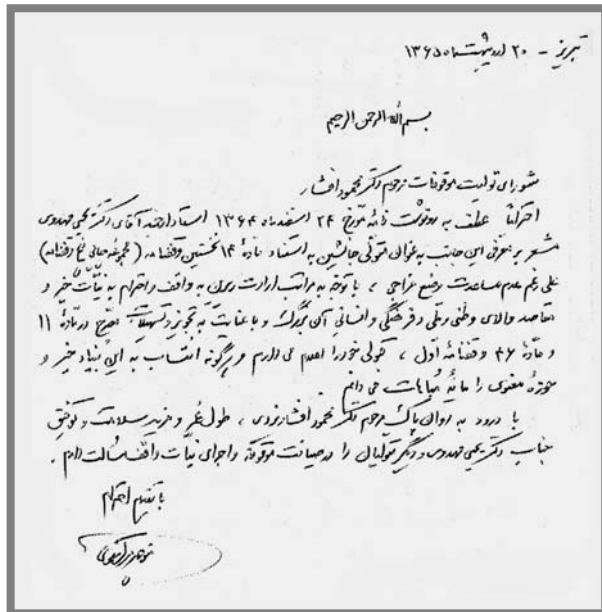 تبریز - ۲۰ اردیبهشت ماه ۱۳۶۵
بسم الله الرحمن الرحیم
شورای تولیت موقوفات مرحوم دکتر محمود افشار
احتراماً عطف به رونوشت نامهٔ مورّخ ۲۴ اسفندماه ۱۳۶۴ استاد ارجمند آقای دکتر یحیی مهدوی
مشعر بر معرفی این جانب به عنوان متولّی جانشین به استناد مادهٔ ۱۴ نخستین وقفنامه (
علی رغم عدم مساعدت وضع مزاجی ، با توجه به مراتب ارادت دیرین به واقف و احترام به نیّات خیر و
مقاصد والای وطنی و ملّی و فرهنگی و انسانی آن بزرگ و با عنایت به تجویز و تسهیلات مصّرح در مادهٔ ۱۱
و مادّهٔ ۴۶ وقفنامهٔ اول ، قبولی خود را اعلام می دارم و هرگونه انتساب به این بنیاد خیر و
حوزهٔ معنوی را مایهٔ مباهات می دانم
با درود به روان پاک مرحوم دکتر محمود افشار یزدی ، طول عُمر و مزید سلامت و توفیق
جناب دکتر یحیی مهدوی و دیگر متولیان را در صیانت موقوفه و اجرای نیّات واقف مسألت دارم .
با تقدیم احترام